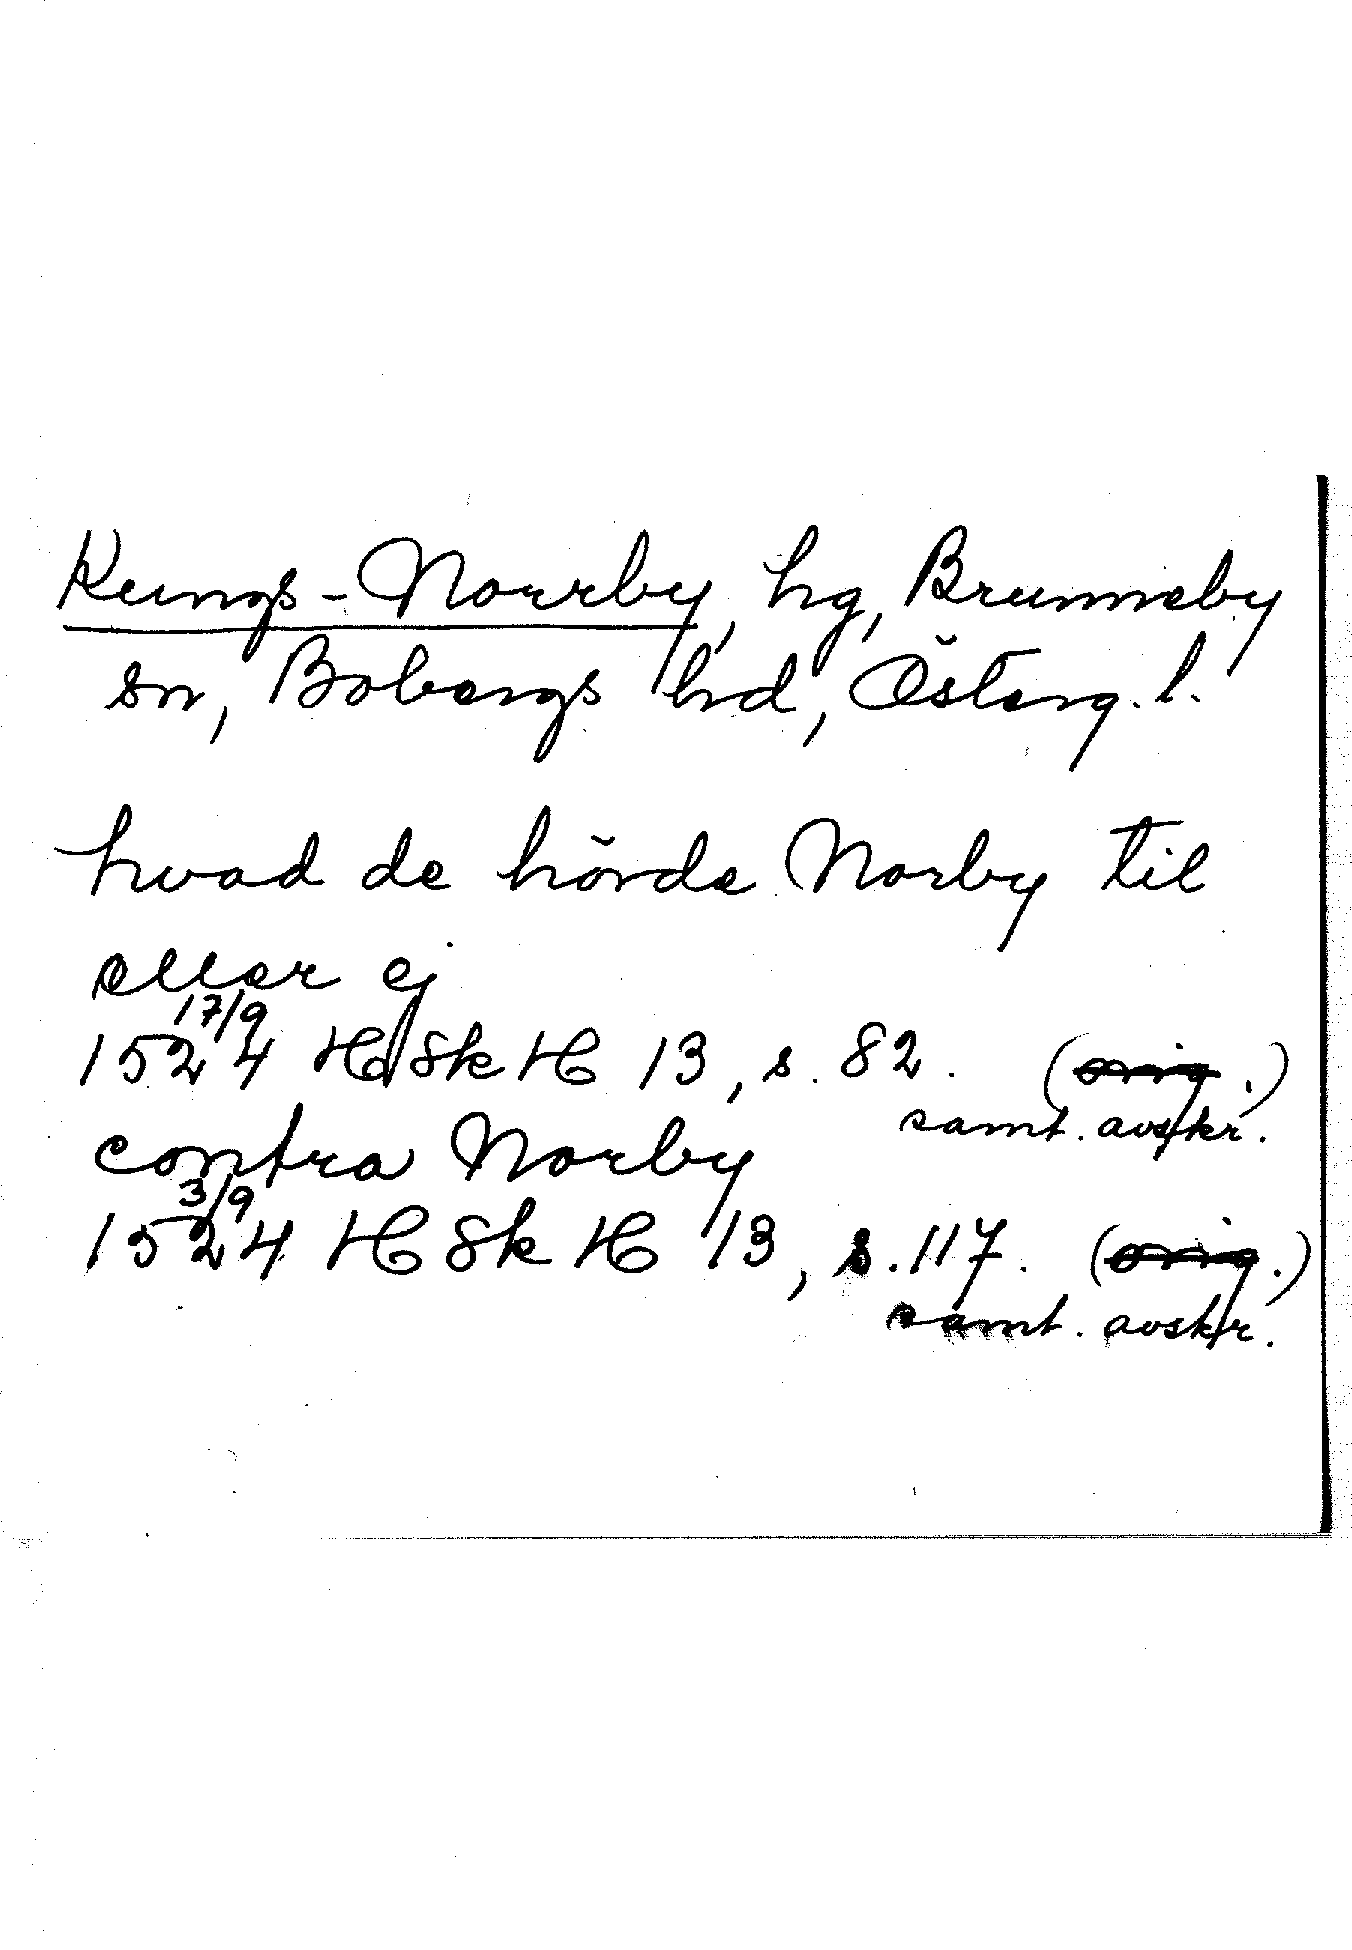 Kungs-Norrby, hg, Brunneby
sn, Bobergs hd, Österg. l.
hvad de hörde Norby til
eller ej
17/9
1524 HSkH 13, s. 82. (orig.)
samt. avskr.
contra Norby
3/9
1524 HSkH 13, s. 117. (orig.)
samt. avskr.